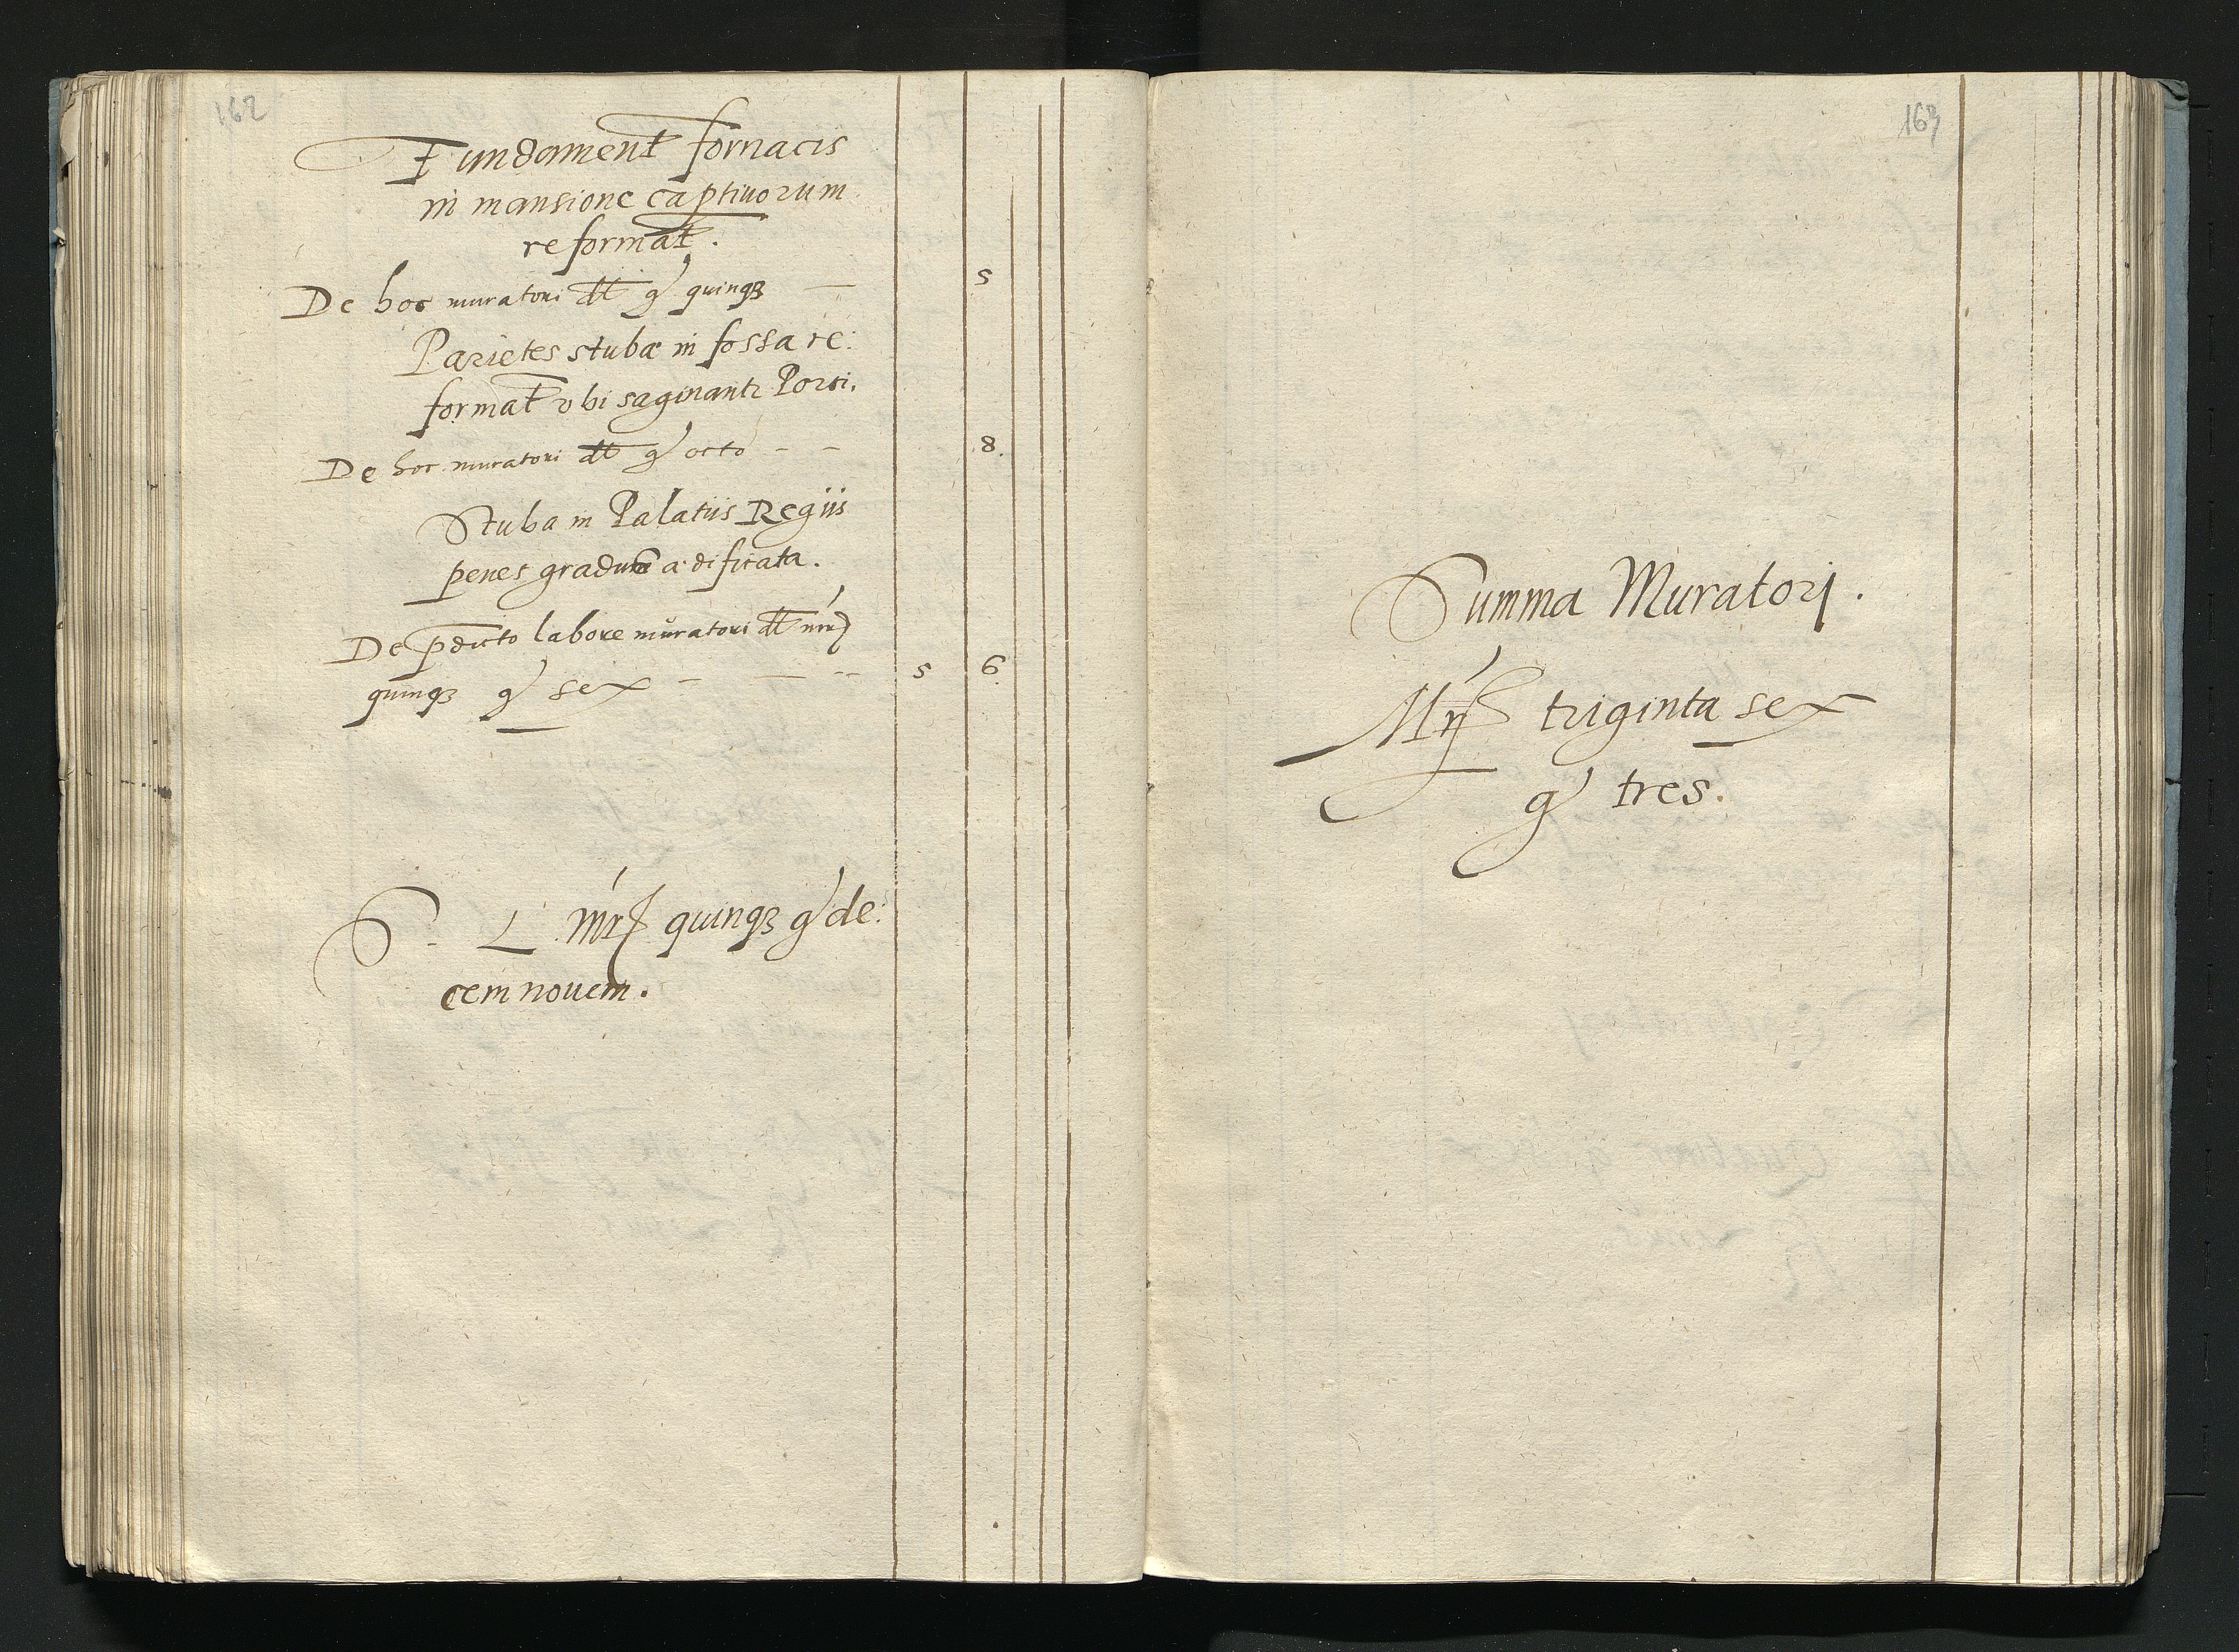 162
Fundament fornacis
in mansione captiuorum
reformat.
De hoc muratori dt g quinqʒ — 5
Parietes stubæ in fossa re:
format vbi saginantr Porci.
De hoc muratori dt g octo - - 8.
Stuba in Palatiis Regiis
penes gradum ædificata.
De pdicto labore muratori dt mr
quinqʒ g sex - — -- 5 6.
S. L. mr quinqʒ g de:
cem nouem.
163
Summa Muratorj.
Mr triginta sex
g tres.